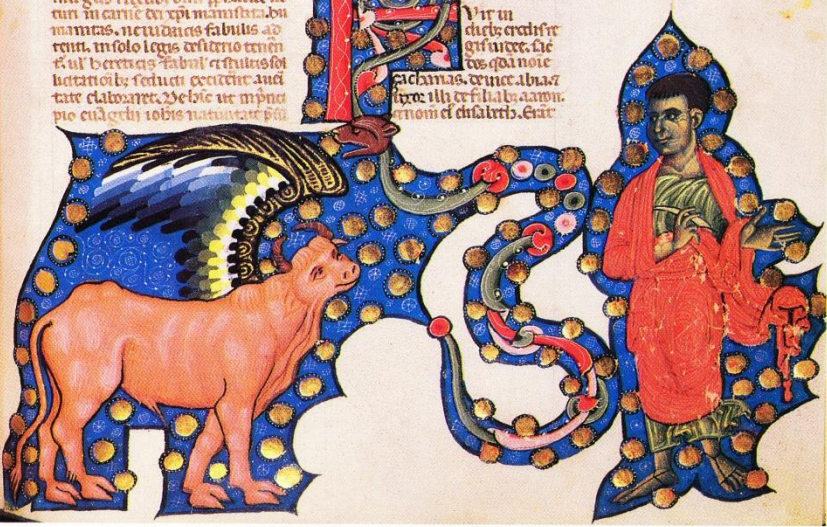 turi in carne dei xpi manifesta. hu
manitas. ne iudaicis fabulis ad
tenti. in solo legis desiderio tenen
t. ul hereticis fabul et stultis sol
licitatioib; seducti exciderent a ueri
tate elaboraret. Dehic ut in pnci
pio euagelii iohis natiuitate psu
F Vit in
dieb; erodis re
gis iudee. sac
dos qda noie
çacharias. de uice abia. 7
uxor illi de filiab; aaron.
7 nom ei elisabeth. Erat